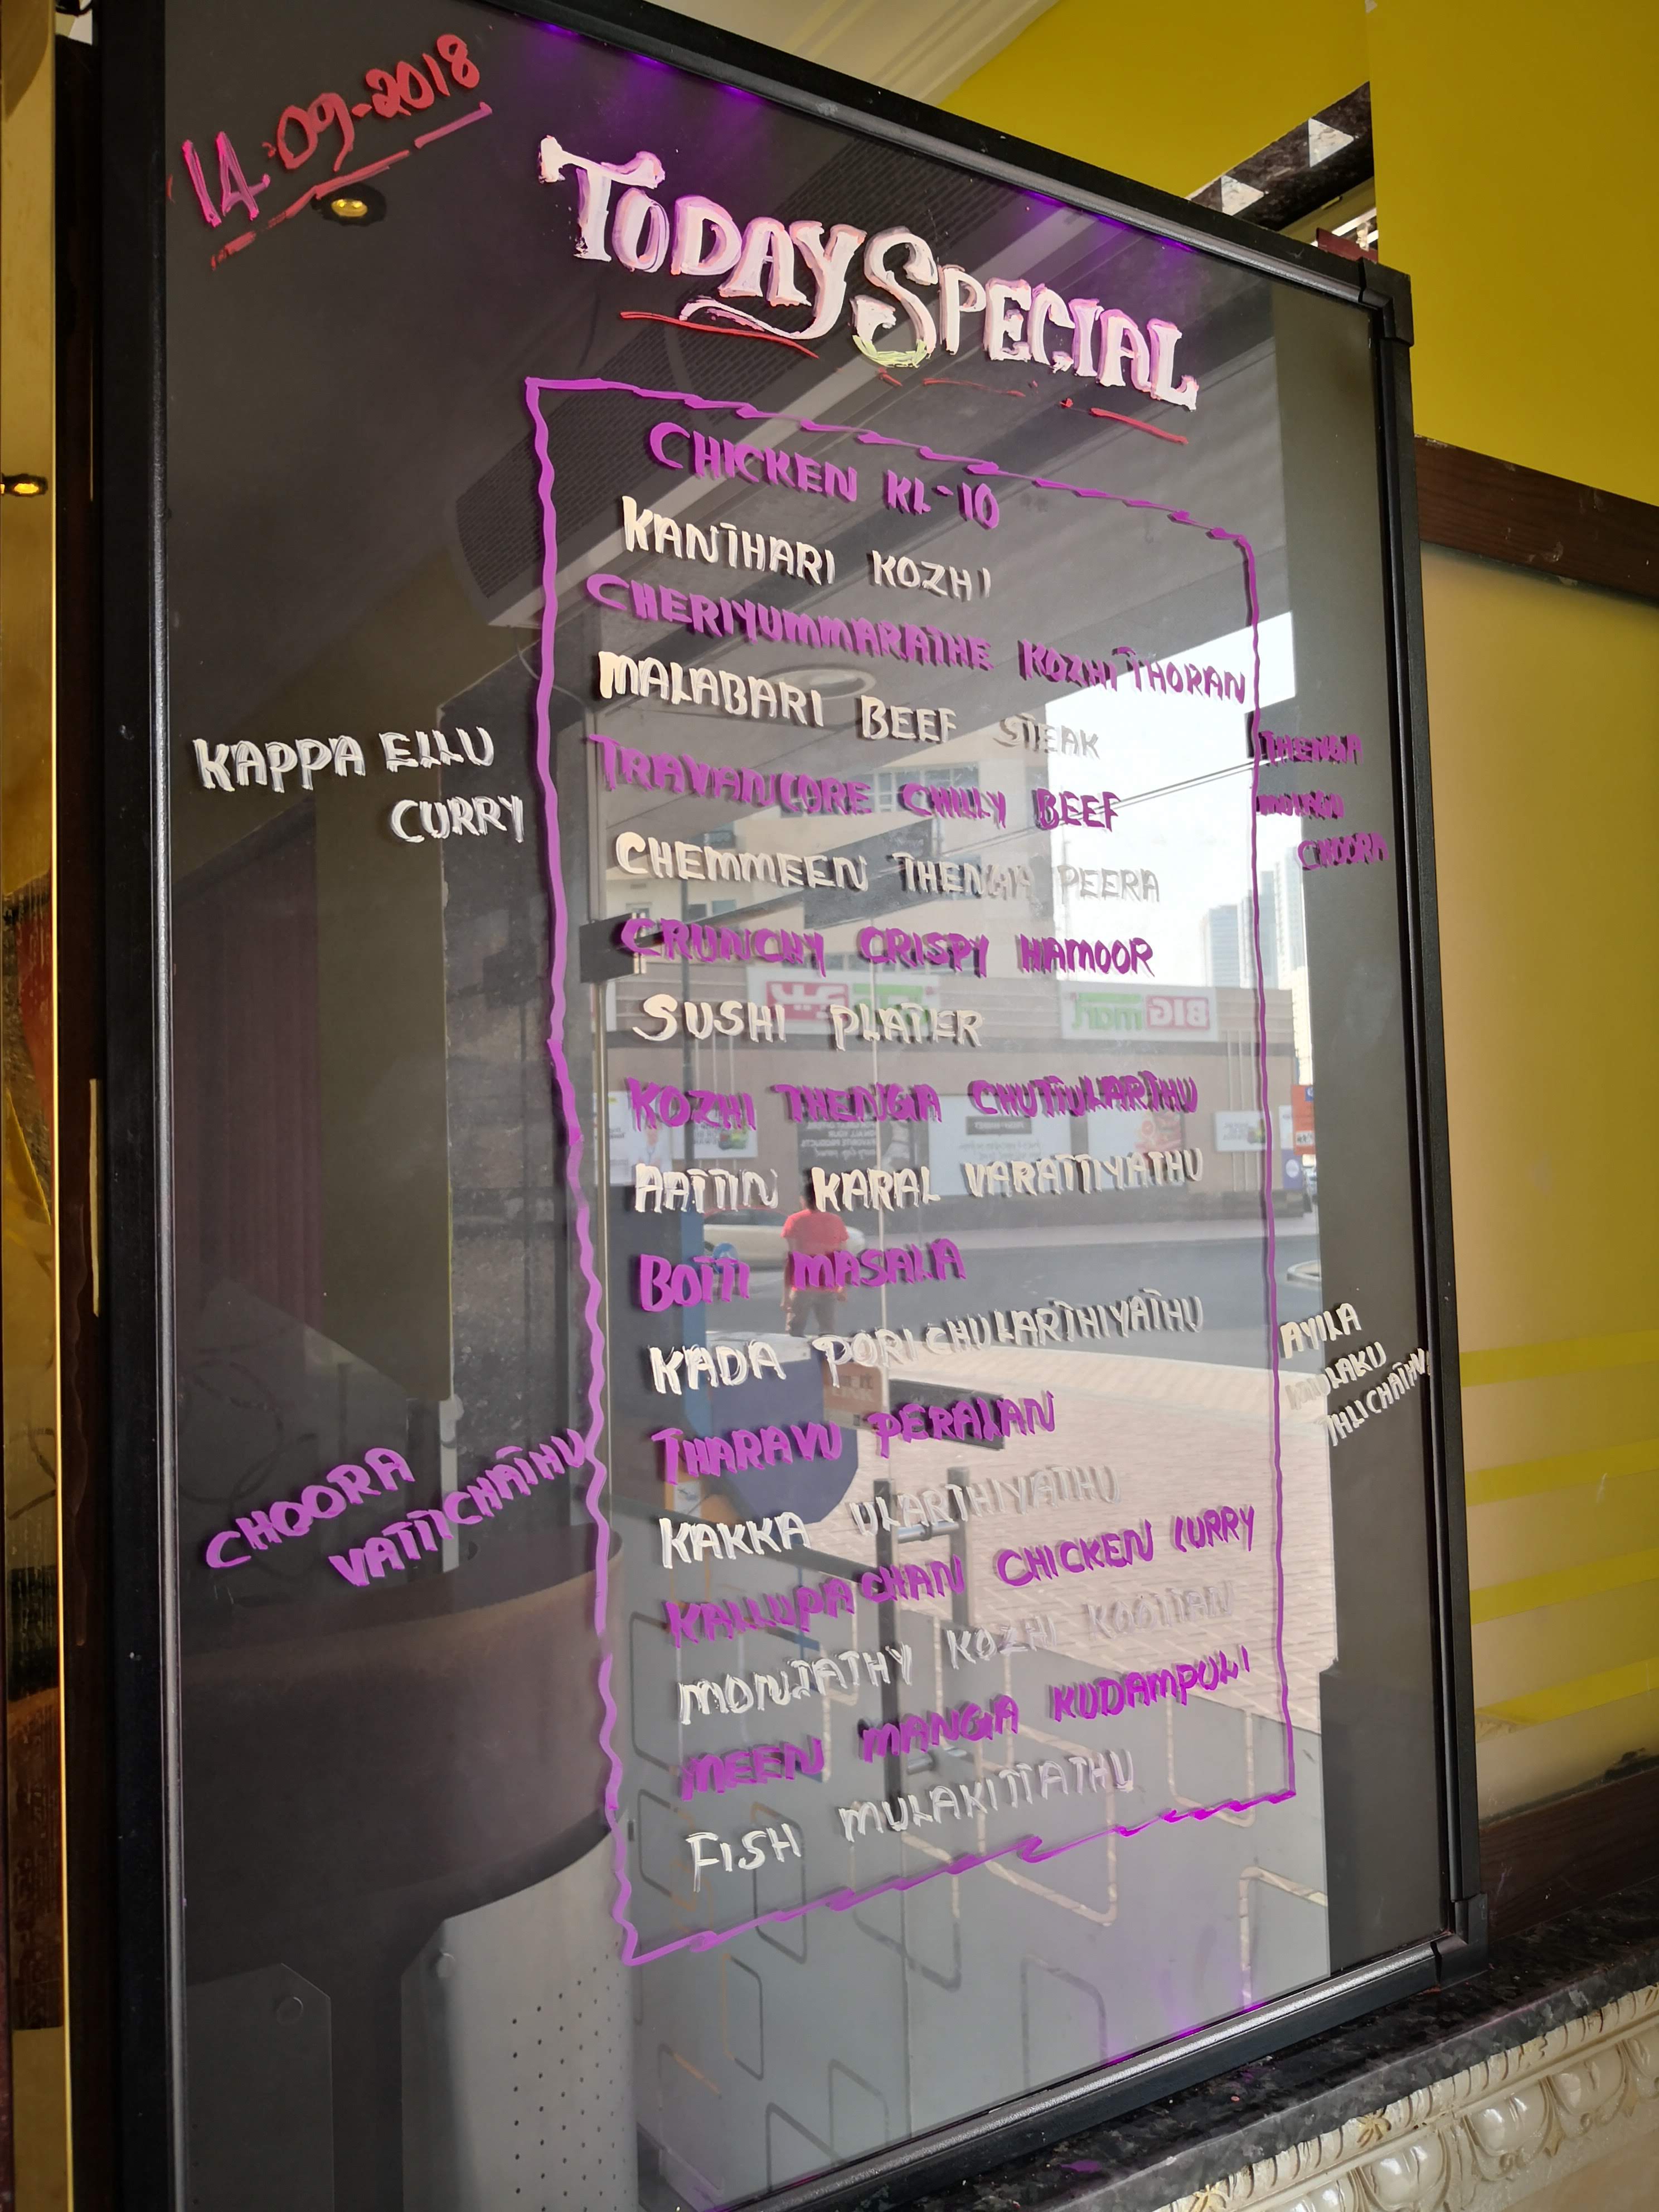 14-09-2018
TODAY SPECIAL
CHICKEN KL-10
KANTHARI KOZHI
CHERIYUMMARATHE KOZHI THORAN
MALABARI BEEF STEAK
TRAVANCORE CHILLY BEEF
CHEMMEEN THENGA PEERA
CRUNCHY CRISPY HAMOOR
SUSHI PLATTER
KOZHI THENGA CHUTTULARTHU
AATTIN KARAL VARATTIYATHU
BOTTI MASALA
KADA PORICHULARTHIYATHU
THARAVU PERALAN
KAKKA ULARTHIYATHU
KALLUPACHAN CHICKEN CURRY
MONJATHY KOZHI
MEEN MANGA KUDAMPULI
FISH MULAKITTATHU
KAPPA ELLU
CURRY
CHOORA
VATTICHATHU
THENGA
CHOORA
AYILA
MULAKU
BIG mart